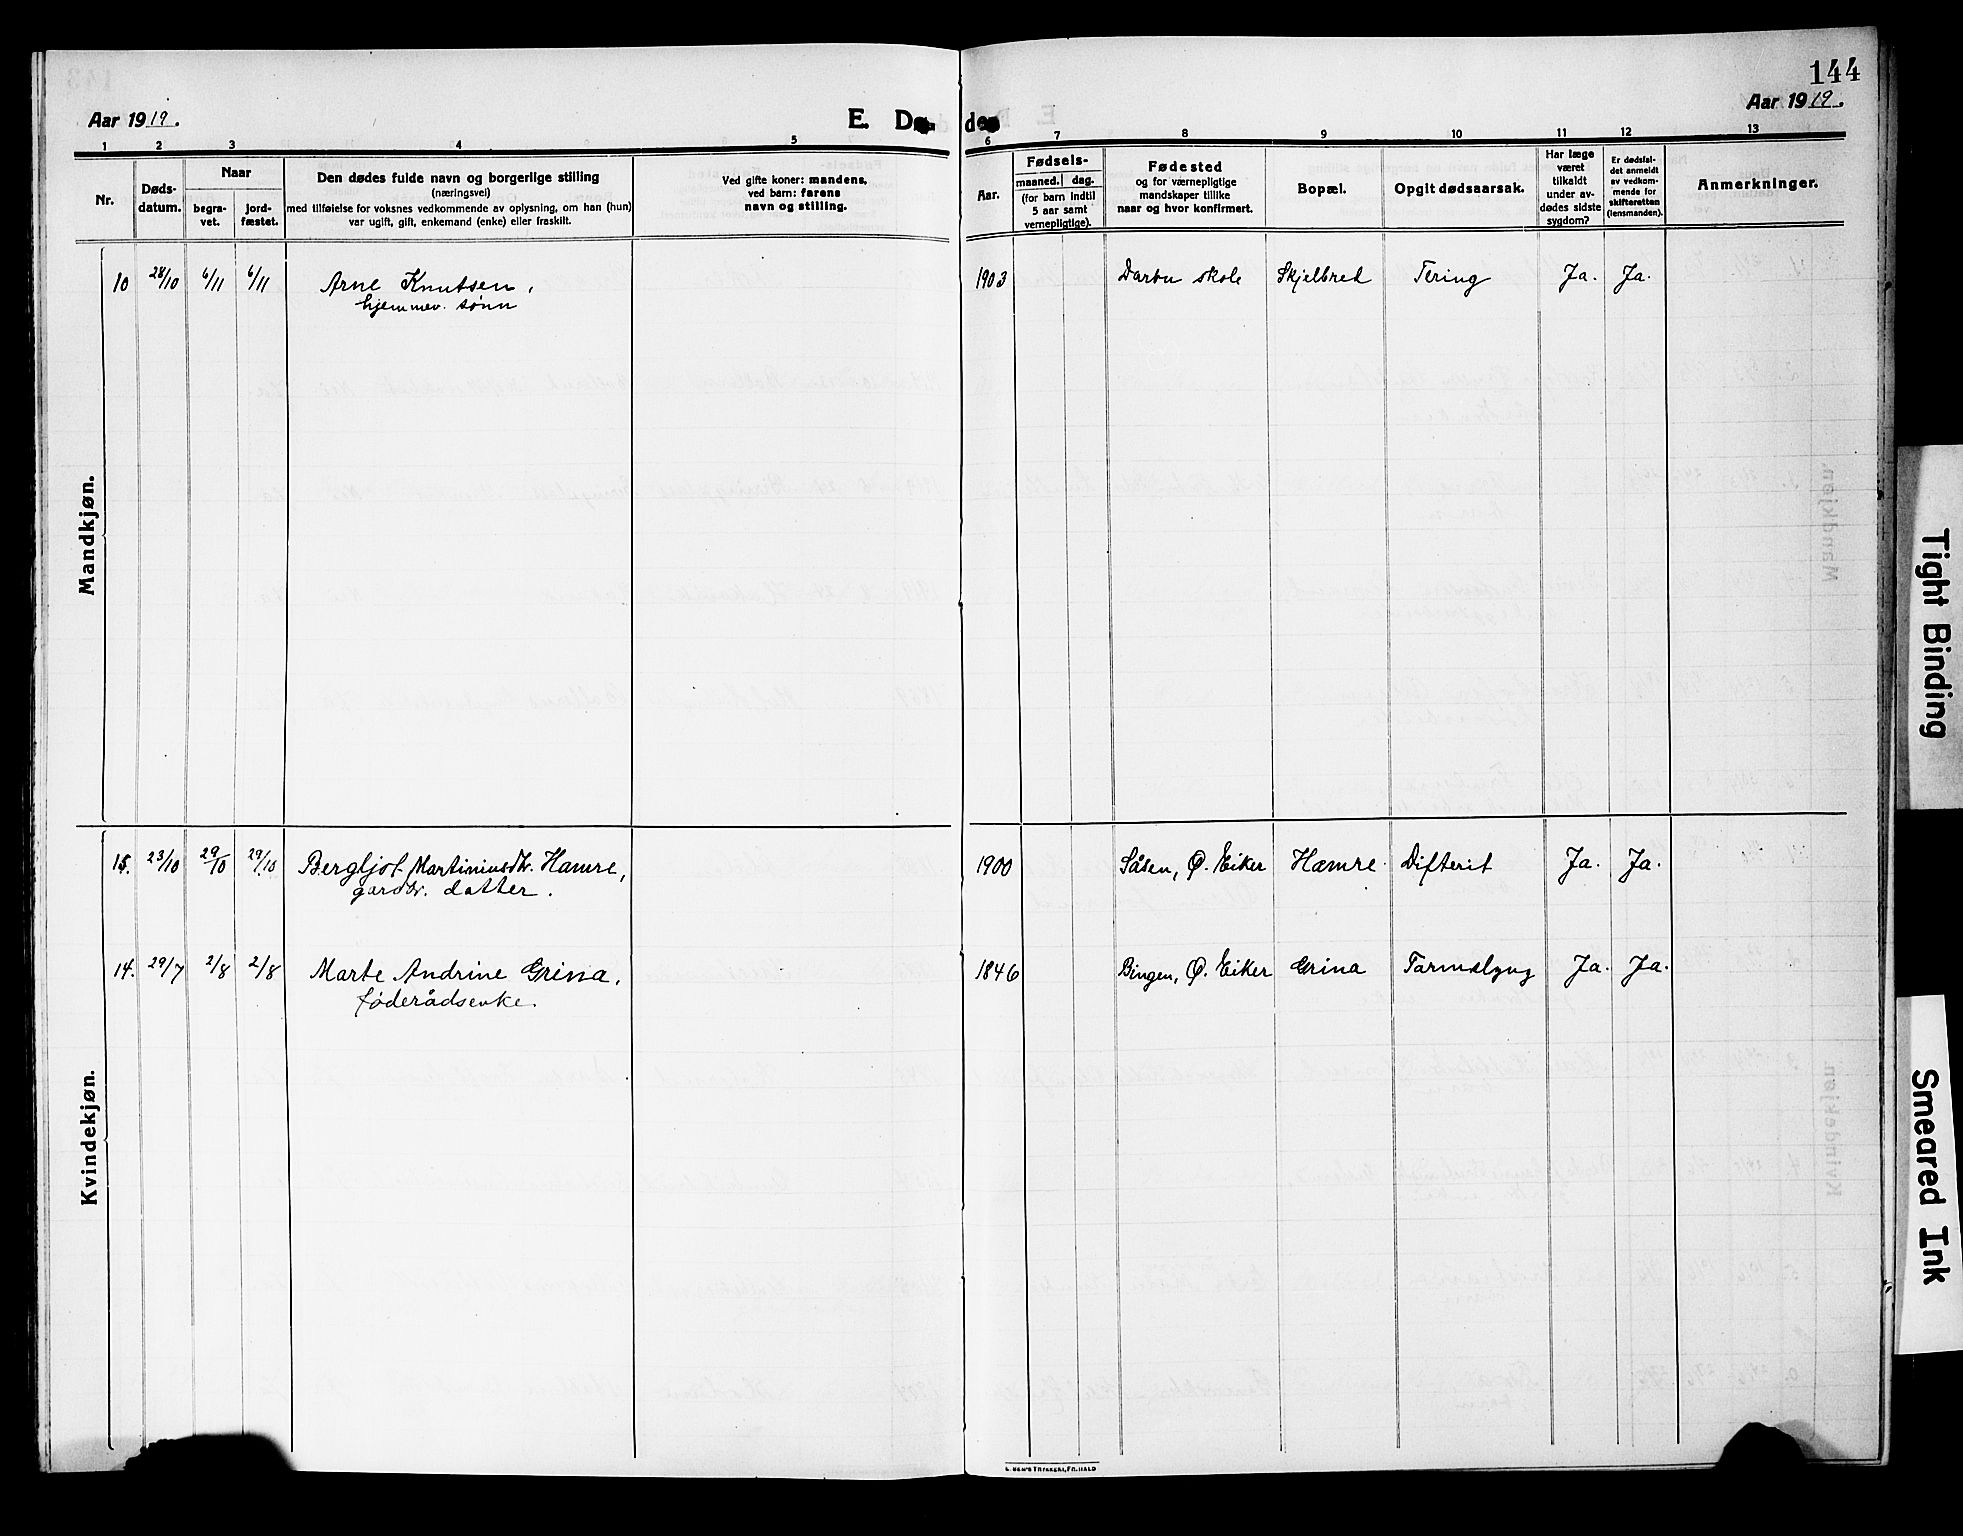 144
Aar 1919.
E. Dø de
Aar 1919.
1 2 3 4 5 6 7 8 9 10 11 12 13
Nr.
Døds-
datum.
Naar
begra-
vet.
jord-
fæstet.
Den dødes fulde navn og borgerlige stilling
(næringsvei)
med tilføielse for voksnes vedkommende av oplysning, om han (hun)
var ugift, gift, enkemand (enke) eller fraskilt.
Ved gifte koner: mandens,
ved barn: farens
navn og stilling.
Aar.
Fødsels-
maaned. dag.
(for barn indtil
5 aar samt
vernepligtige).
Fødested
og for værnepligtige
mandskaper tillike
naar og hvor konfirmert.
Bopæl.
Opgit dødsaarsak.
Har læge
været
tilkaldt
under av-
dødes sidste
sygdom?
Er dødsfal-
det anmeldt
av vedkom-
mende for
skifteretten
(lensmanden).
Anmerkninger.
Mandkjøn.
10 28/10 6/11 6/11 Arne Knutsen, 1903 Darbu skole Skjelbred Tering Ja. Ja.
hjemmev. sønn
Kvindekjøn.
15. 23/10 29/10 29/10 Bergljot Martiniusdtr. Hamre, 1900 Såsen, Ø. Eiker Hamre Difterit Ja. Ja.
gardbr. datter.
14. 29/7 2/8 2/8 Marte Andrine Grina, 1846 Bingen, Ø. Eiker Grina Tarmslyng Ja. Ja.
føderådsenke.
Tight Binding
Smeared Ink